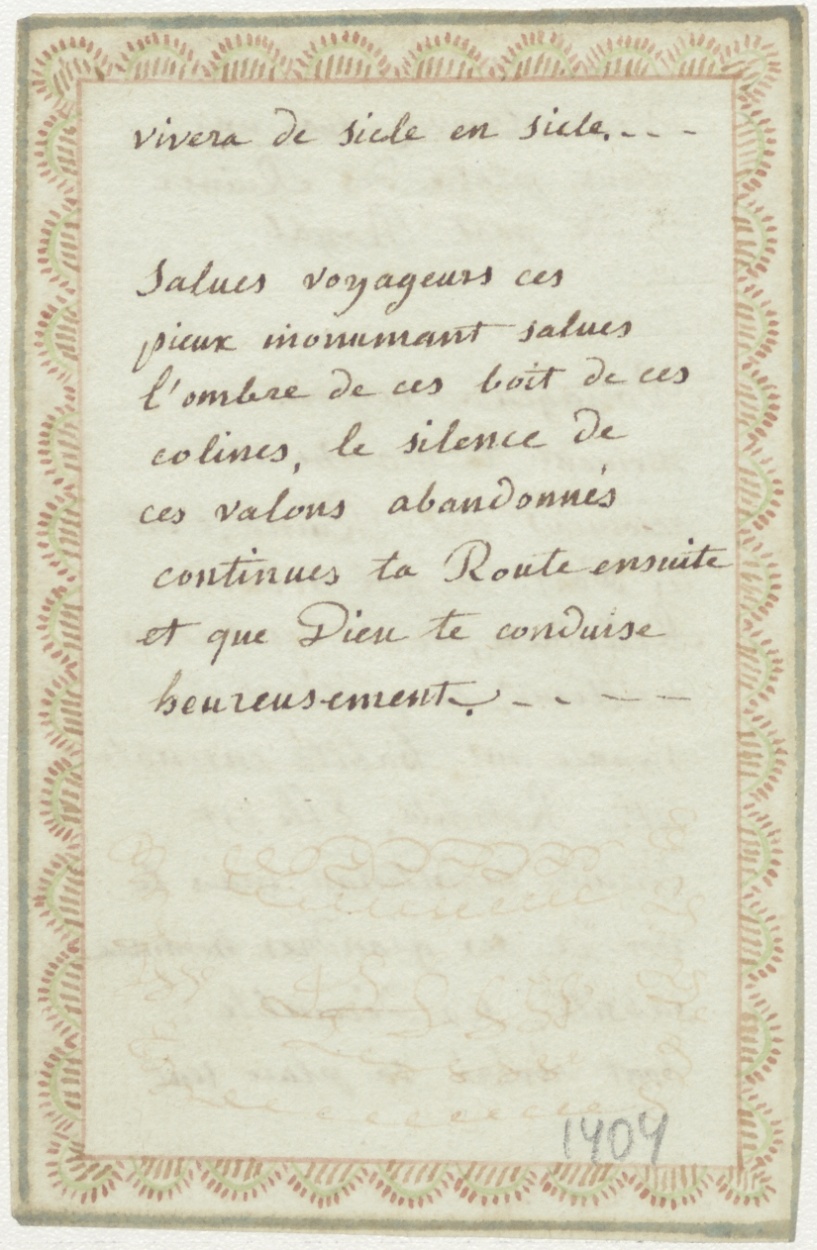 vivera de siele en siele. - - -
Salues voyageurs ces
pieux monumant salues
l'ombre de ces boit de ces
colines, le silence de
ces valons abandonnés
continues ta Route ensuite
et que Dieu te conduise
heureusement. - - - - -
1404